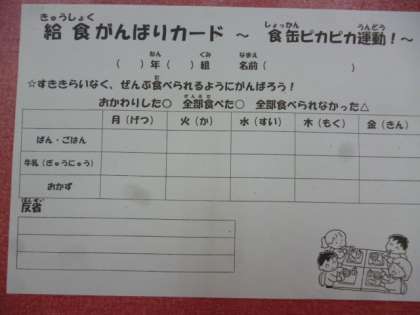 きゅうしょく しょっかん うんどう
給食がんばりカード ～ 食缶ピカピカ運動！～
ねん くみ なまえ
（　　）年（　　）組　名前（　　　　　　）
た
☆すききらいなく、ぜんぶ食べられるようにがんばろう！
ぜんぶた
おかわりした◎ 全部食べた○ 全部食べられなかった△
月（げつ） 火（か） 水（すい） 木（もく） 金（きん）
ぱん・ごはん
牛乳（ぎゅうにゅう）
おかず
はんせい
反省